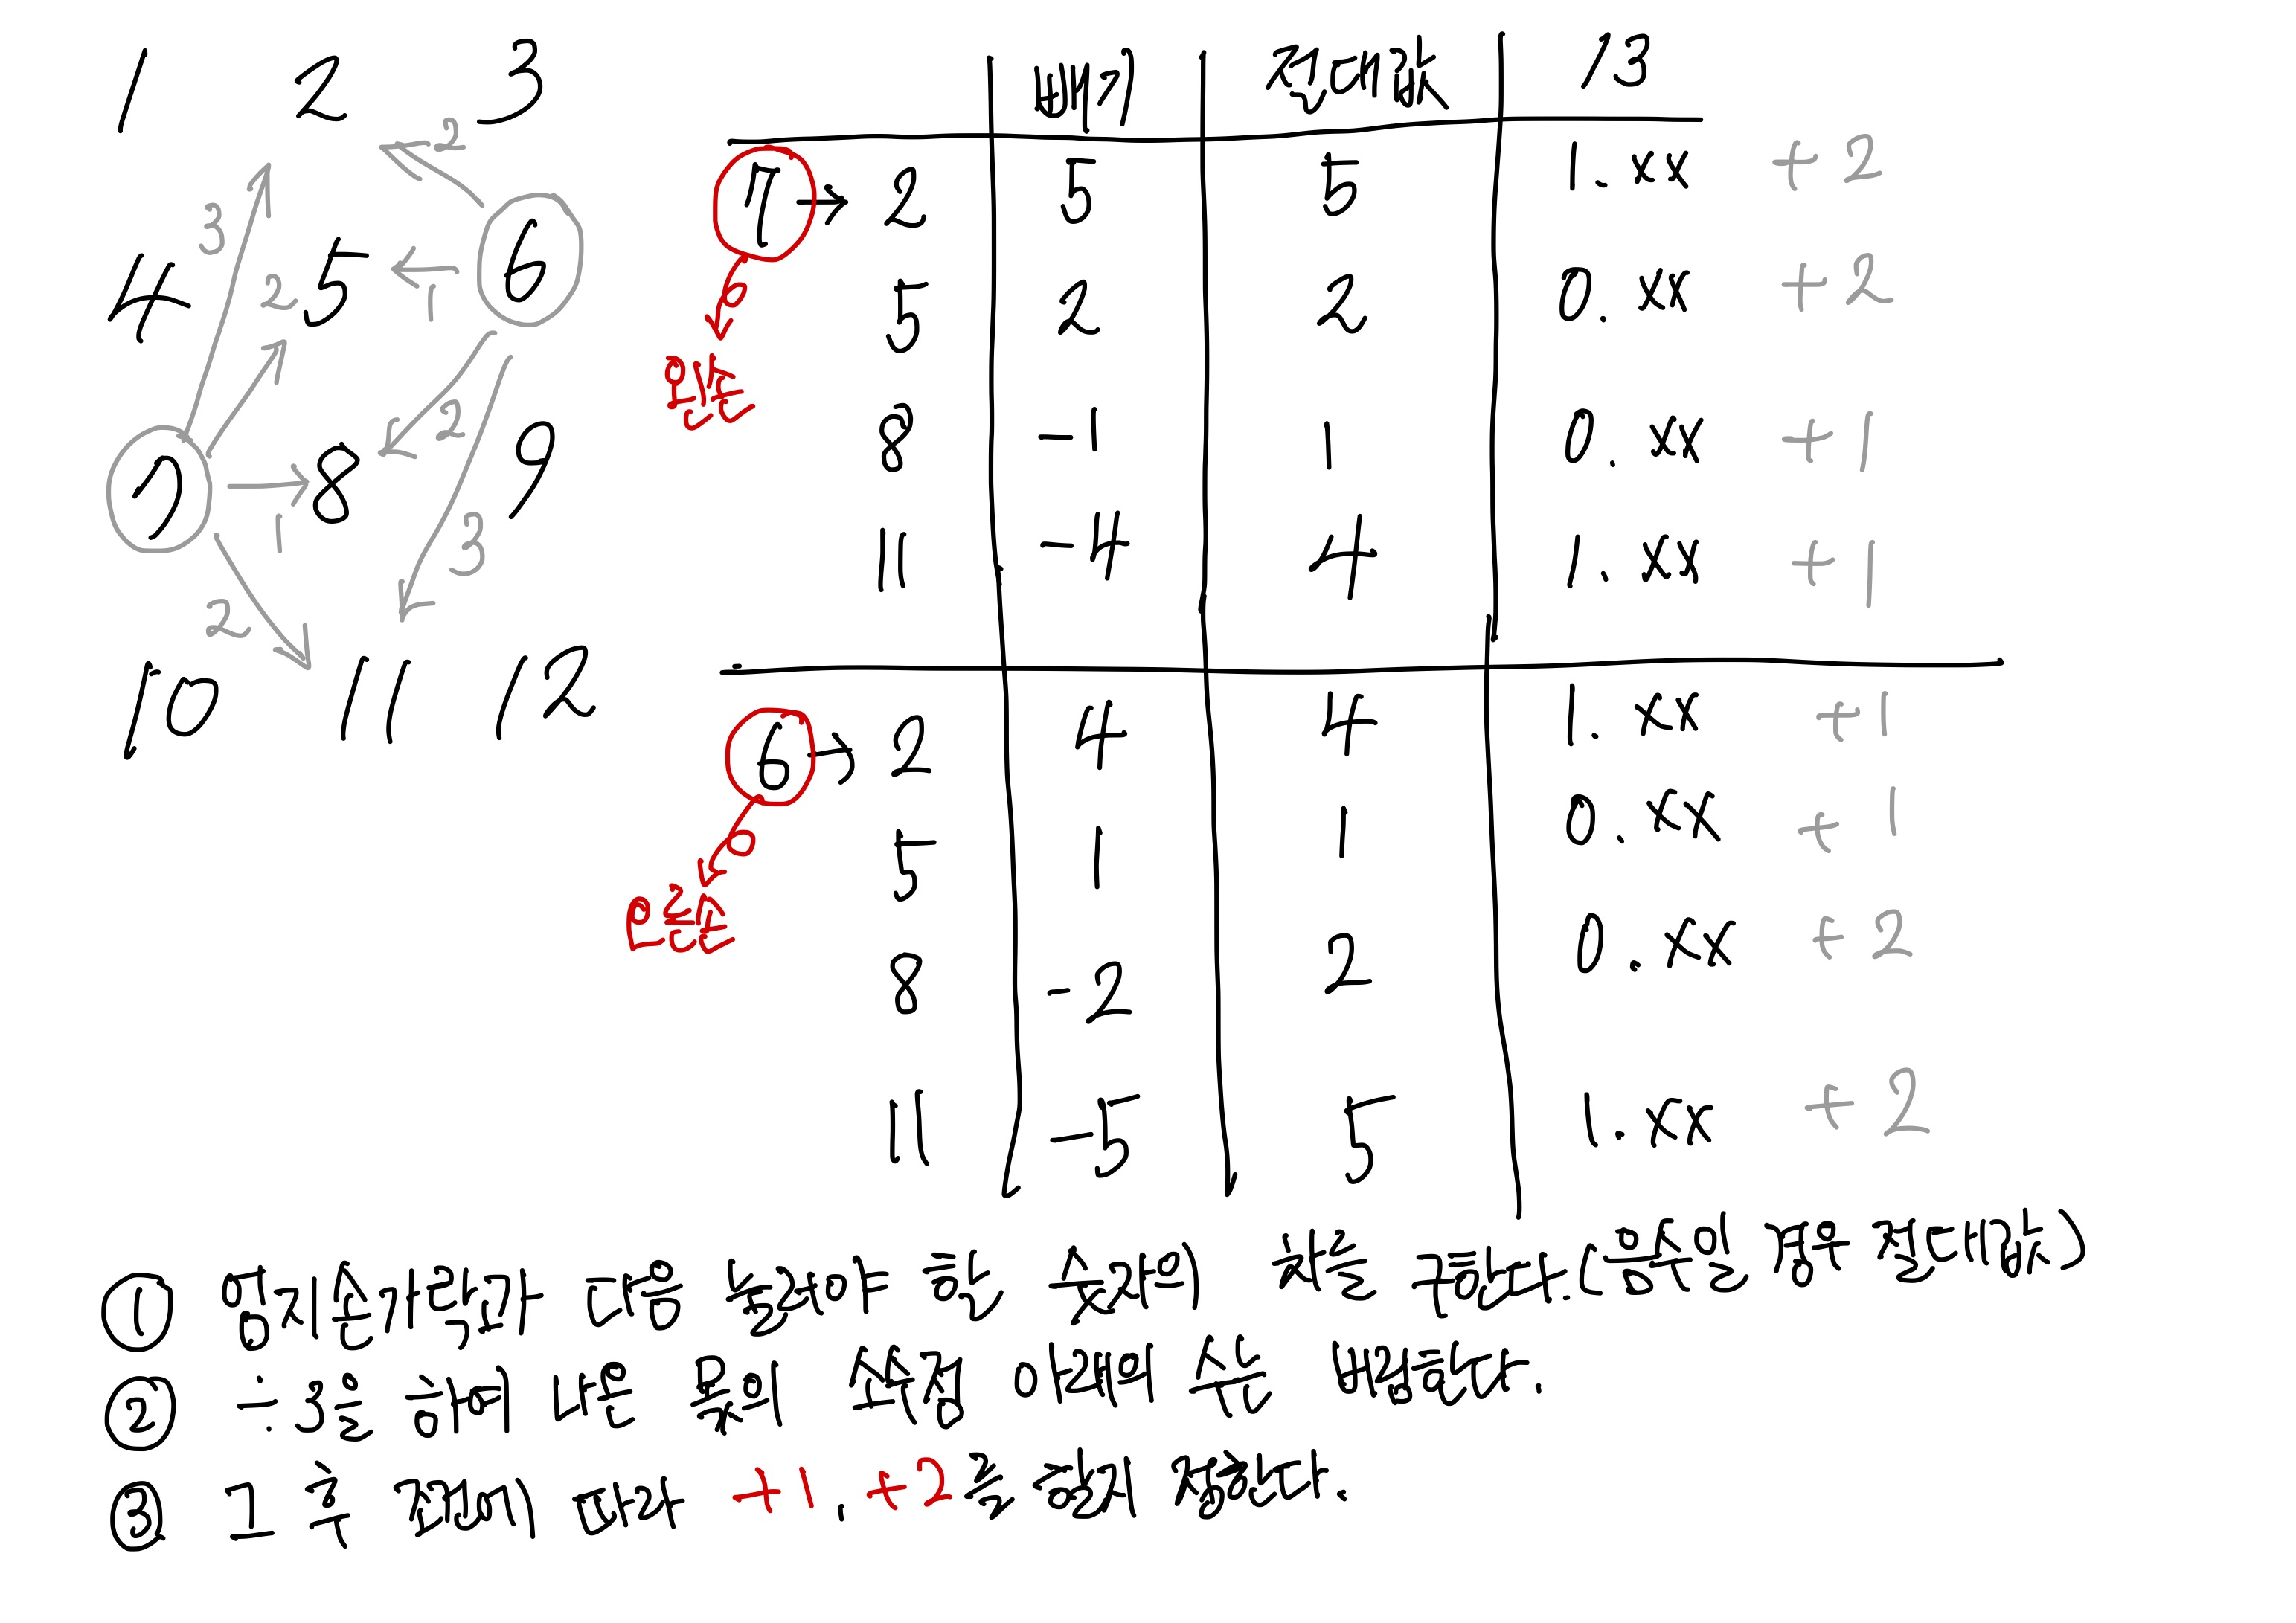 1 2 3
4 5 6
7 8 9
10 11 12
3 2 1 2
2 1 2 3
빼기 절대값 /3
7 → 2 5 5 1.xx +2
5 2 2 0.xx +2
8 -1 1 0.xx +1
11 -4 4 1.xx +1
왼손
6 → 2 4 4 1.xx +1
5 1 1 0.xx +1
8 -2 2 0.xx +2
11 -5 5 1.xx +2
오른손
① 엄지손가락과 다음 눌러야 할 숫자의 차를 구한다. (음수일 경우 절대값)
② ÷3을 하여 나온 몫의 소숫점 아래의 수는 버림한다.
③ 그 후 값에 따라 +1, +2를 할지 정한다.